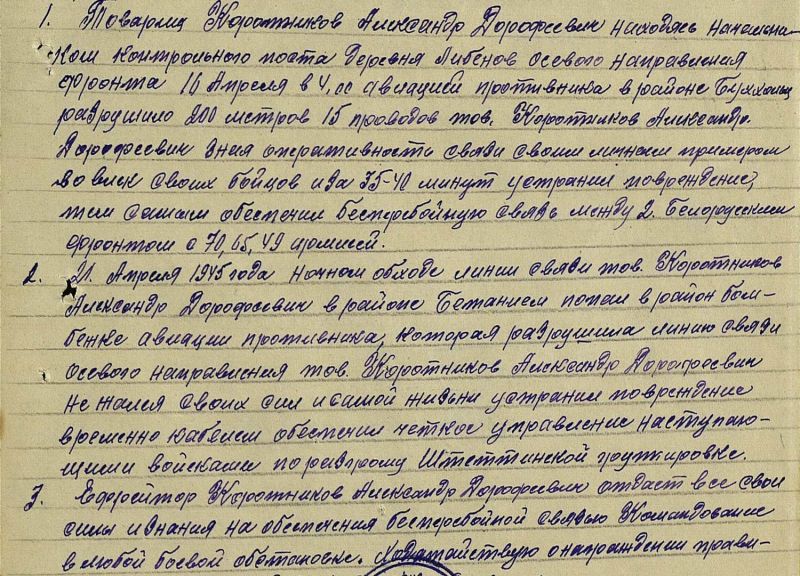 1. Товарищ Коротников Александр Дорофеевич находясь начальни-
ком контрольного поста деревня Либенов осевого направления
фронта 16 Апреля в 4.00 авиацией противника в районе Буххольц
разрушило 200 метров 15 проводов тов. Коротников Александр
Дорофеевич зная оперативность связи своим личным примером
вовлек своих бойцов и за 35-40 минут устранил повреждение,
тем самым обеспечил бесперебойную связь между 2. Белорусским
фронтом с 70, 65, 49 армией.
2. 21. Апреля 1945 года ночном обходе линии связи тов. Коротников
Александр Дорофеевич в районе Бетанием попал в район бом-
бежке авиации противника, которая разрушила линию связи
осевого направления тов. Коротников Александр Дорофеевич
не жалея своих сил и самой жизни устранил повреждение
временно кабелем обеспечил четкое управление наступаю-
щими войсками по разгрому Штеттинской группировке.
3. Ефрейтор Коротников Александр Дорофеевич отдаст все свои
силы и знания на обеспечения бесперебойной связью Командование
в любой боевой обстановке. Ходатайствую о награждении прави-